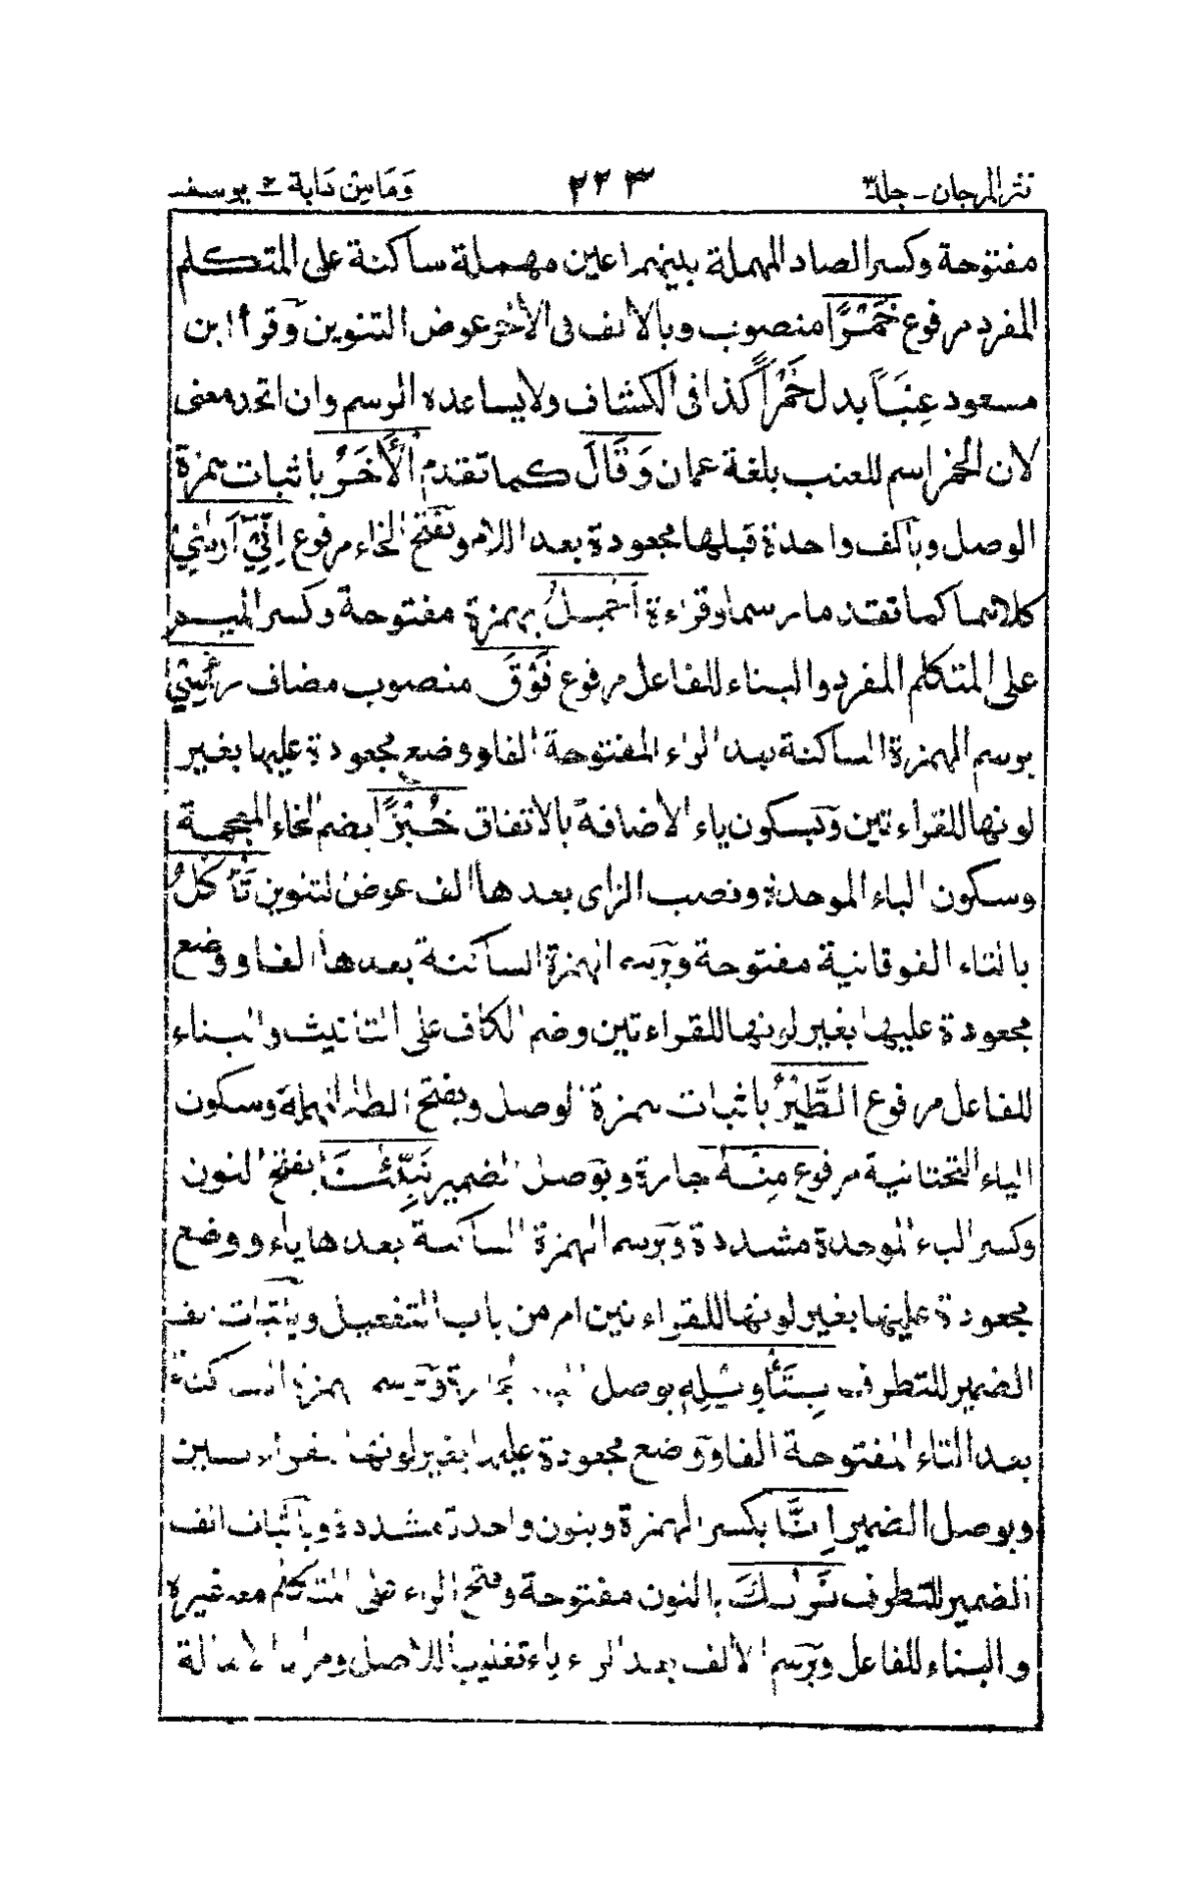 نثر المرجان - جلد٣
٢٢٣
وَمَا مِنْ دَابة ١٢ يوسف
مفتوحة وكسر الصاد المهملة بينهما عين مهملة ساكنة على المتكلم
المفرد مرفوع خَمْرًا منصوب وبالالف فى الأخر عوض التنوين وقرأ ابن
مسعود عِنَبًا بدل خَمْرًا كذا فى الكشاف ولا يساعده الرسم وان اتحد معنى
لان الخمر اسم للعنب بلغة عمان وَقَالَ كما تقدم الْأٰخَرُ باثبات همزة
الوصل وبالف واحدة قبلها مجعودة بعد اللام وبفتح الخاء مرفوع اِنِّيْٓ اَرٰىنِيْٓ
كلاهما كما تقدما رسما وقراءة اَحْمِلُ بهمزة مفتوحة وكسر الميم
على المتكلم المفرد والبناء للفاعل مرفوع فَوْقَ منصوب مضاف رَأْسِيْ
برسم الهمزة الساكنة بعد الراء المفتوحة الفا ووضع مجعودة عليها بغير
لونها للقراءتين وبسكون ياء الاضافة بالاتفاق خُبْزًا بضم الخاء المعجمة
وسكون الباء الموحدة ونصب الزاى بعدها الف عوض التنوين تَأْكُلُ
بالتاء الفوقانية مفتوحة وبرسم الهمزة الساكنة بعدها الفا ووضع
مجعودة عليها بغير لونها للقراءتين وضم الكاف على التانيث والبناء
للفاعل مرفوع الطَّيْرُ باثبات همزة الوصل وبفتح الطاء المهملة وسكون
الياء التحتانية مرفوع مِنْهُ جارة وبوصل الضمير نَبِّئْنَا بفتح النون
وكسر الباء الموحدة مشددة وبرسم الهمزة الساكنة بعدها ياء ووضع
مجعودة عليها بغير لونها للقراءتين امر من باب التفعيل وباثبات الف
الضمير للتطرف بِتَأْوِيْلِهٖ بوصل الباء الجارة وبرسم همزة الساكنة
بعد التاء المفتوحة الفا ووضع مجعودة عليها بغير لونها للقراءتين
وبوصل الضمير اِنَّا بكسر الهمزة وبنون واحدة مشددة وباثبات الف
الضمير للتطرف نَرٰىكَ بالنون مفتوحة وفتح الراء على المتكلم معه غيره
والبناء للفاعل وبرسم الالف بعد الراء ياء تغليبا للاصل ومراد الامالة